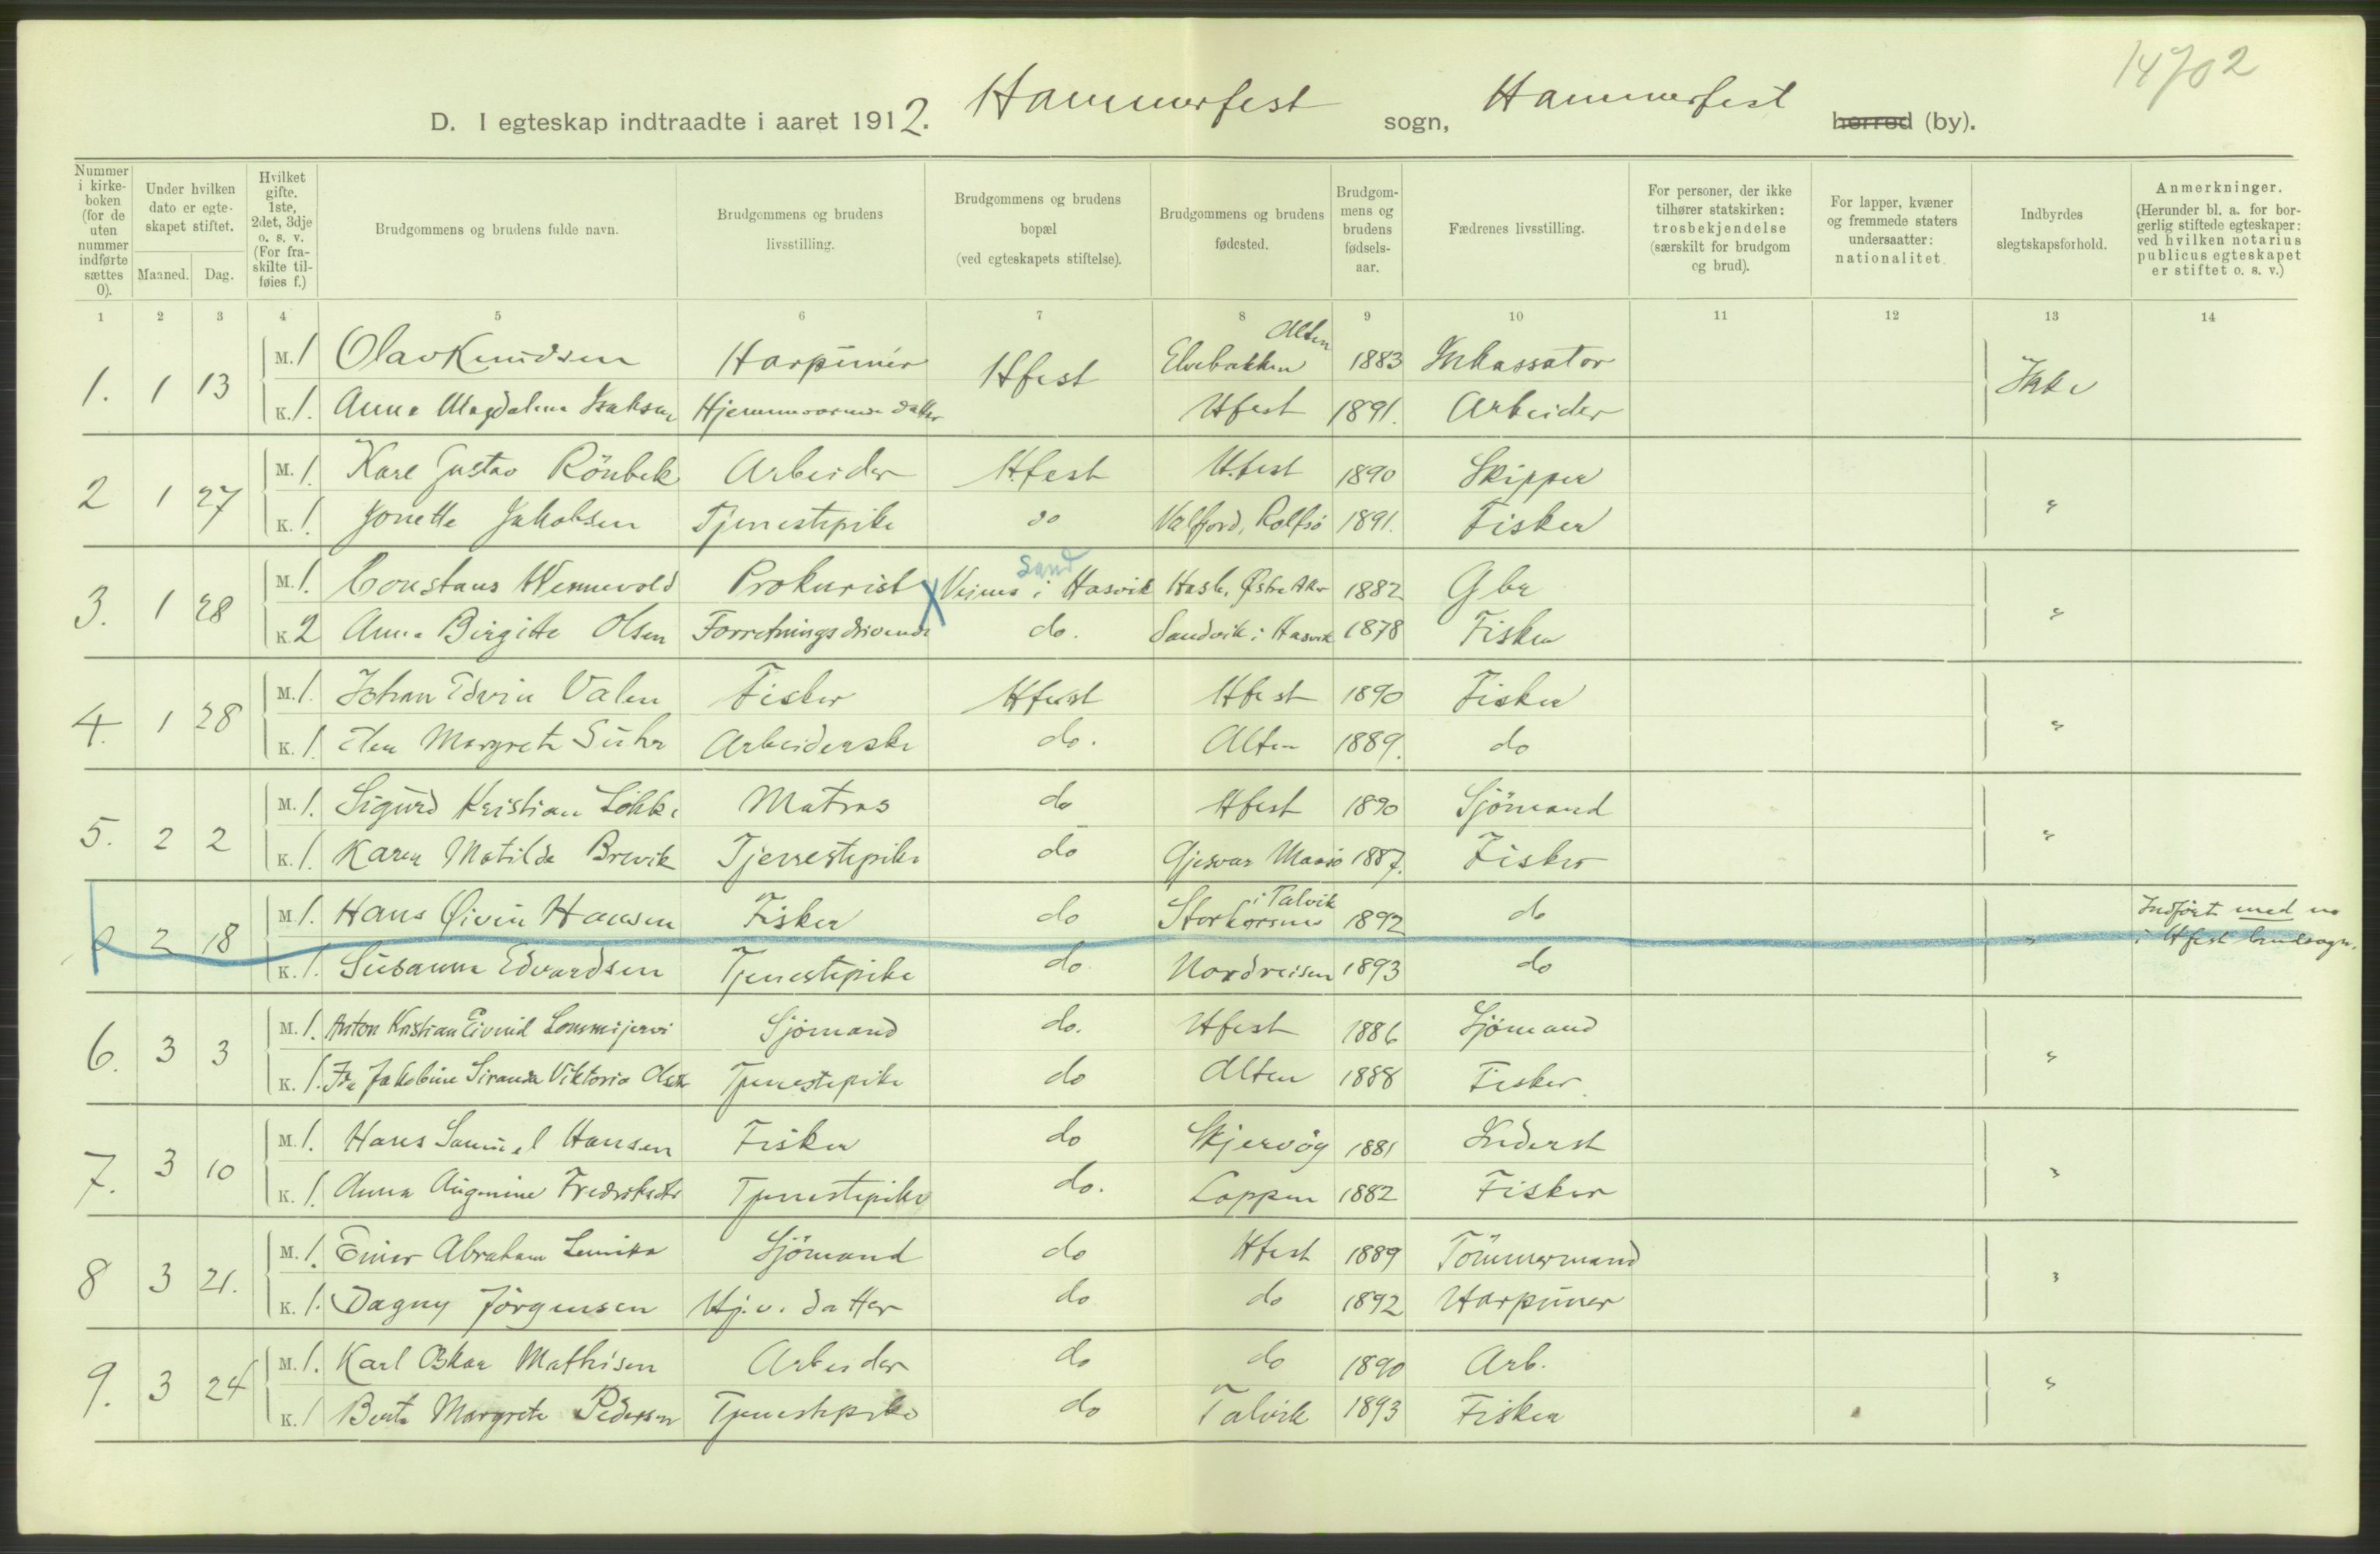 14702
D. I egteskap indtraadte i aaret 1912. Hammerfest sogn, Hammerfest herred (by).
Nummer i kirkeboken (for de uten nummer indførte sættes 0).
Under hvilken dato er egteskapet stiftet.
Maaned. Dag.
Hvilket gifte. 1ste, 2det, 3dje o. s. v. (For fraskilte tilføies f.)
Brudgommens og brudens fulde navn.
Brudgommens og brudens livsstilling.
Brudgommens og brudens bopæl (ved egteskapets stiftelse).
Brudgommens og brudens fødested.
Brudgommens og brudens fødselsaar.
Fædrenes livsstilling.
For personer, der ikke tilhører statskirken: trosbekjendelse (særskilt for brudgom og brud).
For lapper, kvæner og fremmede staters undersaatter: nationalitet
Indbyrdes slegtskapsforhold.
Anmerkninger. (Herunder bl. a. for borgerlig stiftede egteskaper: ved hvilken notarius publicus egteskapet er stiftet o. s. v.)
1 2 3 4 5 6 7 8 9 10 11 12 13 14
1. 1 13 M. 1 Olav Knudsen Harpunér Hfest Elvebakken Alten 1883 Inkassator Ikke
K. 1. Anna Magdalena Isaksen Hjemmeværende datter Hfest 1891. Arbeider
2 1 27 M. 1. Karl Gustav Rönbek Arbeider Hfest Hfest 1890 Skipper "
K. 1. Jonette Jakobsen Tjenestepike do Valfjord, Rolfsö 1891. Fisker
3. 1 28 M. 1. Constans Wennevold Prokurist X Veines i Hasvik Sand Hasle, Østre Aker 1882 Gbr "
K. 2 Anna Birgitte Olsen Forretningsdrivende do. Sandvik i Hasvik 1878 Fisker
4. 1 28 M. 1. Johan Edvin Valen Fisker Hfest Hfest 1890 Fisker "
K. 1. Elen Margrete Suhr Arbeiderske do. Alten 1889. do
5. 2 2 M. 1. Sigurd Kristian Lökke Matros do Hfest 1890 Sjömand "
K. 1. Karen Matilde Brevik Tjenestepike do Gjesvær Maasö 1887. Fisker
2 18 M. 1. Hans Øivin Hansen Fisker do Storkorsnes i Talvik 1892 do " Indført med no i Hfest landsogn.
K. 1. Susanna Edvardsen Tjenestepike do Nordreisen 1893 do
6. 3 3 M. 1. Anton Kristian Eivind Lommijervi Sjömand do. Hfest 1886 Sjömand "
K. 1. Ida Jakobine Siranda Viktoria Olsen Tjenestepike do Alten 1888 Fisker.
7. 3 10 M. 1. Hans Samuel Hansen Fisker do Skjervöy 1881 Inderst "
K. 1. Anna Augenine Fredriksdtr Tjenestepike do. Loppen 1882 Fisker
8 3 21. M. 1. Einar Abraham Sjömand do Hfest 1889 Tömmermand "
K. 1. Dagny Jörgensen Hj. v. datter do do 1892 Harpuner
9. 3 24 M. 1. Karl Oskar Mathisen Arbeider do do 1890 Arb. "
K. 1 Berte Margrete Pedersen Tjenestepike do Talvik 1893 Fisker